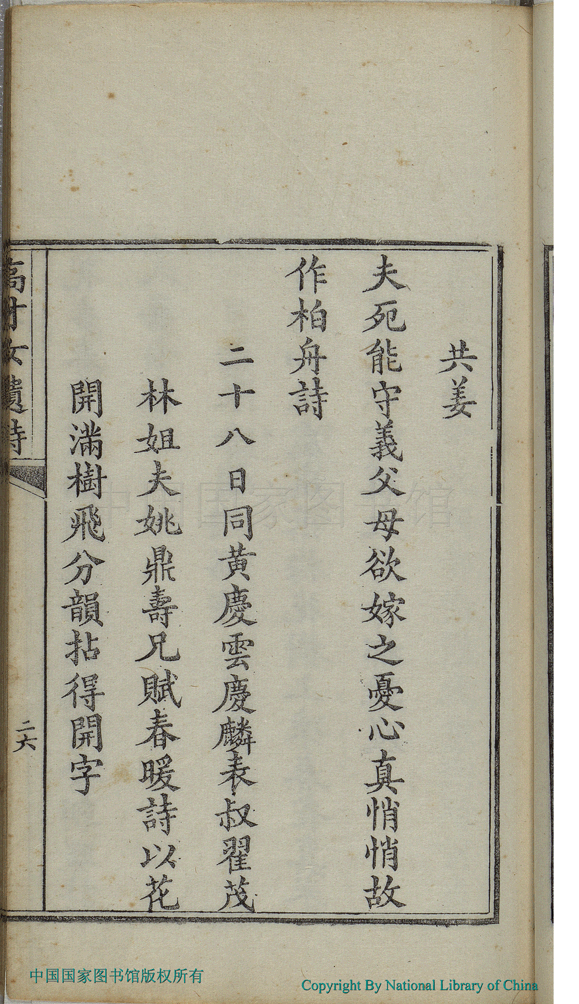 共姜
夫死能守義父母欲嫁之憂心真悄悄故
作柏舟詩
二十八日同黄慶雲慶麟表叔翟茂
林姐夫姚鼎壽兄賦春暖詩以花
開滿樹飛分韻拈得開字
高才女遺詩
二六
中国国家图书馆
中国国家图书馆版权所有
Copyright By National Library of China